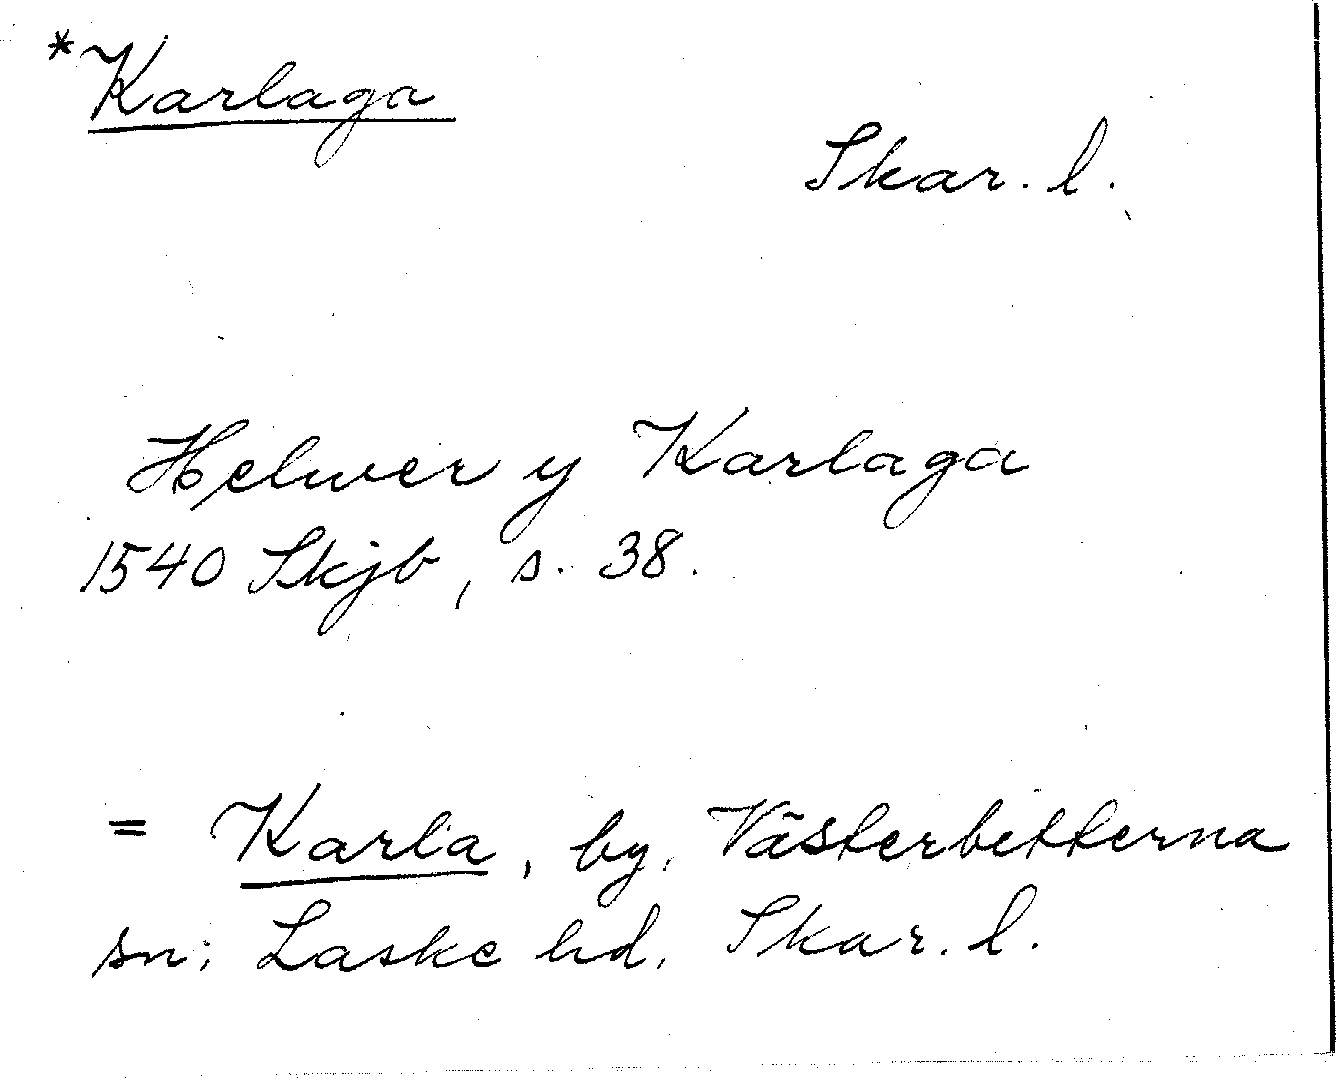 *Karlaga
Skar. l.
Helwer y Karlaga
1540 Skjb, s. 38.
= Karla, by, Västerbitterna
sn; Laske hd, Skar. l.